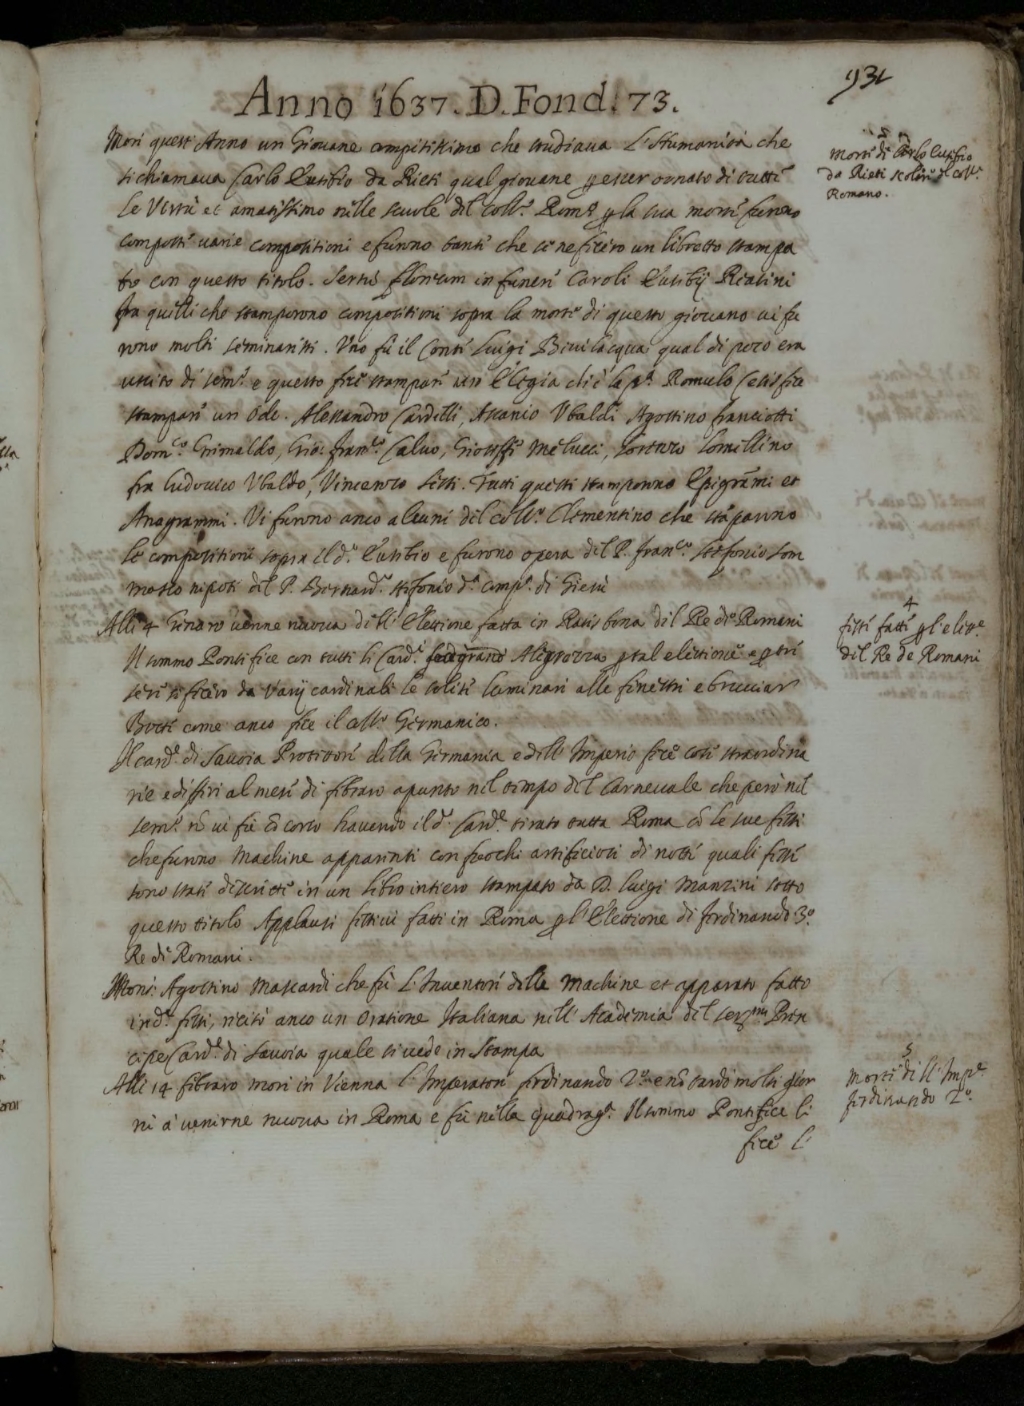 931
Anno 1637. D. Fond. 73.
Morì quest' Anno un Giovane compitissimo che studiava L'Humanità che
si chiamava Carlo Eusebio da Rieti qual giovane p esser ornato di tutte
le Virtù et amatissimo nelle scuole del Coll.º Rom.º p la sua morte furono
composte varie compositioni e furono tante che se ne fecero un libretto stampa
to con questo titolo. Serta florum in funere Caroli Eusebij Reatini
fra quelli che stamporono compositioni sopra la morte di questo giovane vi fu
rono molti seminaristi. Uno fù il Conte Luigi Bevilacqua qual di poco era
uscito di sem.º e questo fece stampare un Elegia
Romulo Cesis fece
stampare un Ode. Alessandro Cardelli, Ascanio Ubaldi Agostino franciotti
Dom.co Grimaldo, Gio: fran.co Calvo, Gioseffe Melucci, Lorenzo Lomellino
fra Ludovico Ubaldo, Vincenzo Sitti. Tutti questi stamporono Epigrãmi et
Anagrammi. Vi furono anco alcuni del coll.º Clementino che stãporono
le compositioni sopra il d.º Eusebio e furono opera del P. fran.co Stefonio som
masco nipote del P. Bernard.º Stefonio d.ª comp.ª di Giesù
Alli 4 Genaro venne nuova dell' Elettione fatta in Ratisbona del Re de Romani
Il sommo Pontefice con tutti li Card.li fece grand Alegrezza p tal elettione e p tre
sere si fecero da Varij cardinali le soliti luminari alle finestre e bruciar
Botti come anco fece il coll.º Germanico.
Il card.le di Savoia Protettore della Germania e dell' Imperio fece cose straordina
rie e differì al mese di febraro apunto nel tempo del Carnevale che però nel
sem.º nõ vi fù cõcorso havendo il d.º Card.le tirato tutta Roma cõ le sue feste
che furono Machine apparenti con fuochi artificiosi di notte quali feste
sono state descritte in un libro intiero stampato da D. Luigi Manzini sotto
questo titolo Applausi festivi fatti in Roma p l'Elettione di ferdinando 3.º
Re de Romani.
Mons.r Agostino Mascardi che fù L'Inventore delle Machine et apparato fatto
in d.e feste, recitò anco un Oratione Italiana nell' Academia del Ser.mo Prin
cipe Card.le di Savoia quale si vede in Stampa
Alli 14 febraro morì in Vienna l'Imperatore ferdinando 2.º e nõ tardò molti gior
ni à venirne nuova in Roma e fù nella quadrag.ª Il sommo Pontefice li
fece l'
3
Morte di Carlo Eusebio
da Rieti scolare del coll.º
Romano.
4
feste fatte p l'elet.e
del Re de Romani
5
Morte dell' Imp.e
ferdinando 2.º